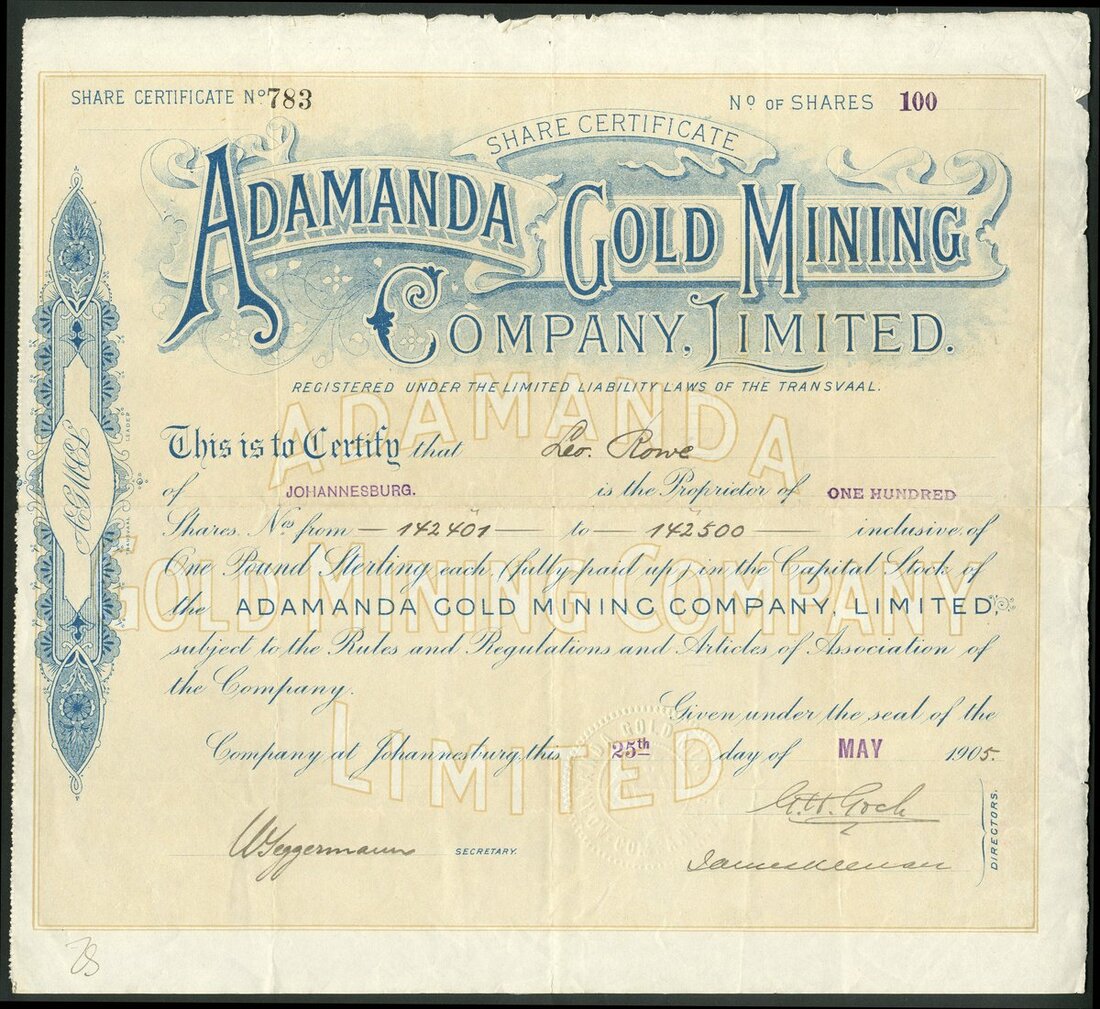 SHARE CERTIFICATE Nº 783
Nº OF SHARES 100
SHARE CERTIFICATE
ADAMANDA GOLD MINING
COMPANY, LIMITED.
REGISTERED UNDER THE LIMITED LIABILITY LAWS OF THE TRANSVAAL.
This is to Certify that Leo. Rowe
of JOHANNESBURG. is the Proprietor of ONE HUNDRED
Shares Nos from — 142401 — to — 142500 — inclusive of
One Pound Sterling each, (fully paid up) in the Capital Stock of
the ADAMANDA GOLD MINING COMPANY, LIMITED,
subject to the Rules and Regulations and Articles of Association of
the Company.
Given under the seal of the
Company at Johannesburg this 25th day of MAY 1905.
G.H. Goch
SECRETARY.
DIRECTORS.
AGMCL
LEADER
TRANSVAAL
ADAMANDA
GOLD MINING COMPANY
LIMITED